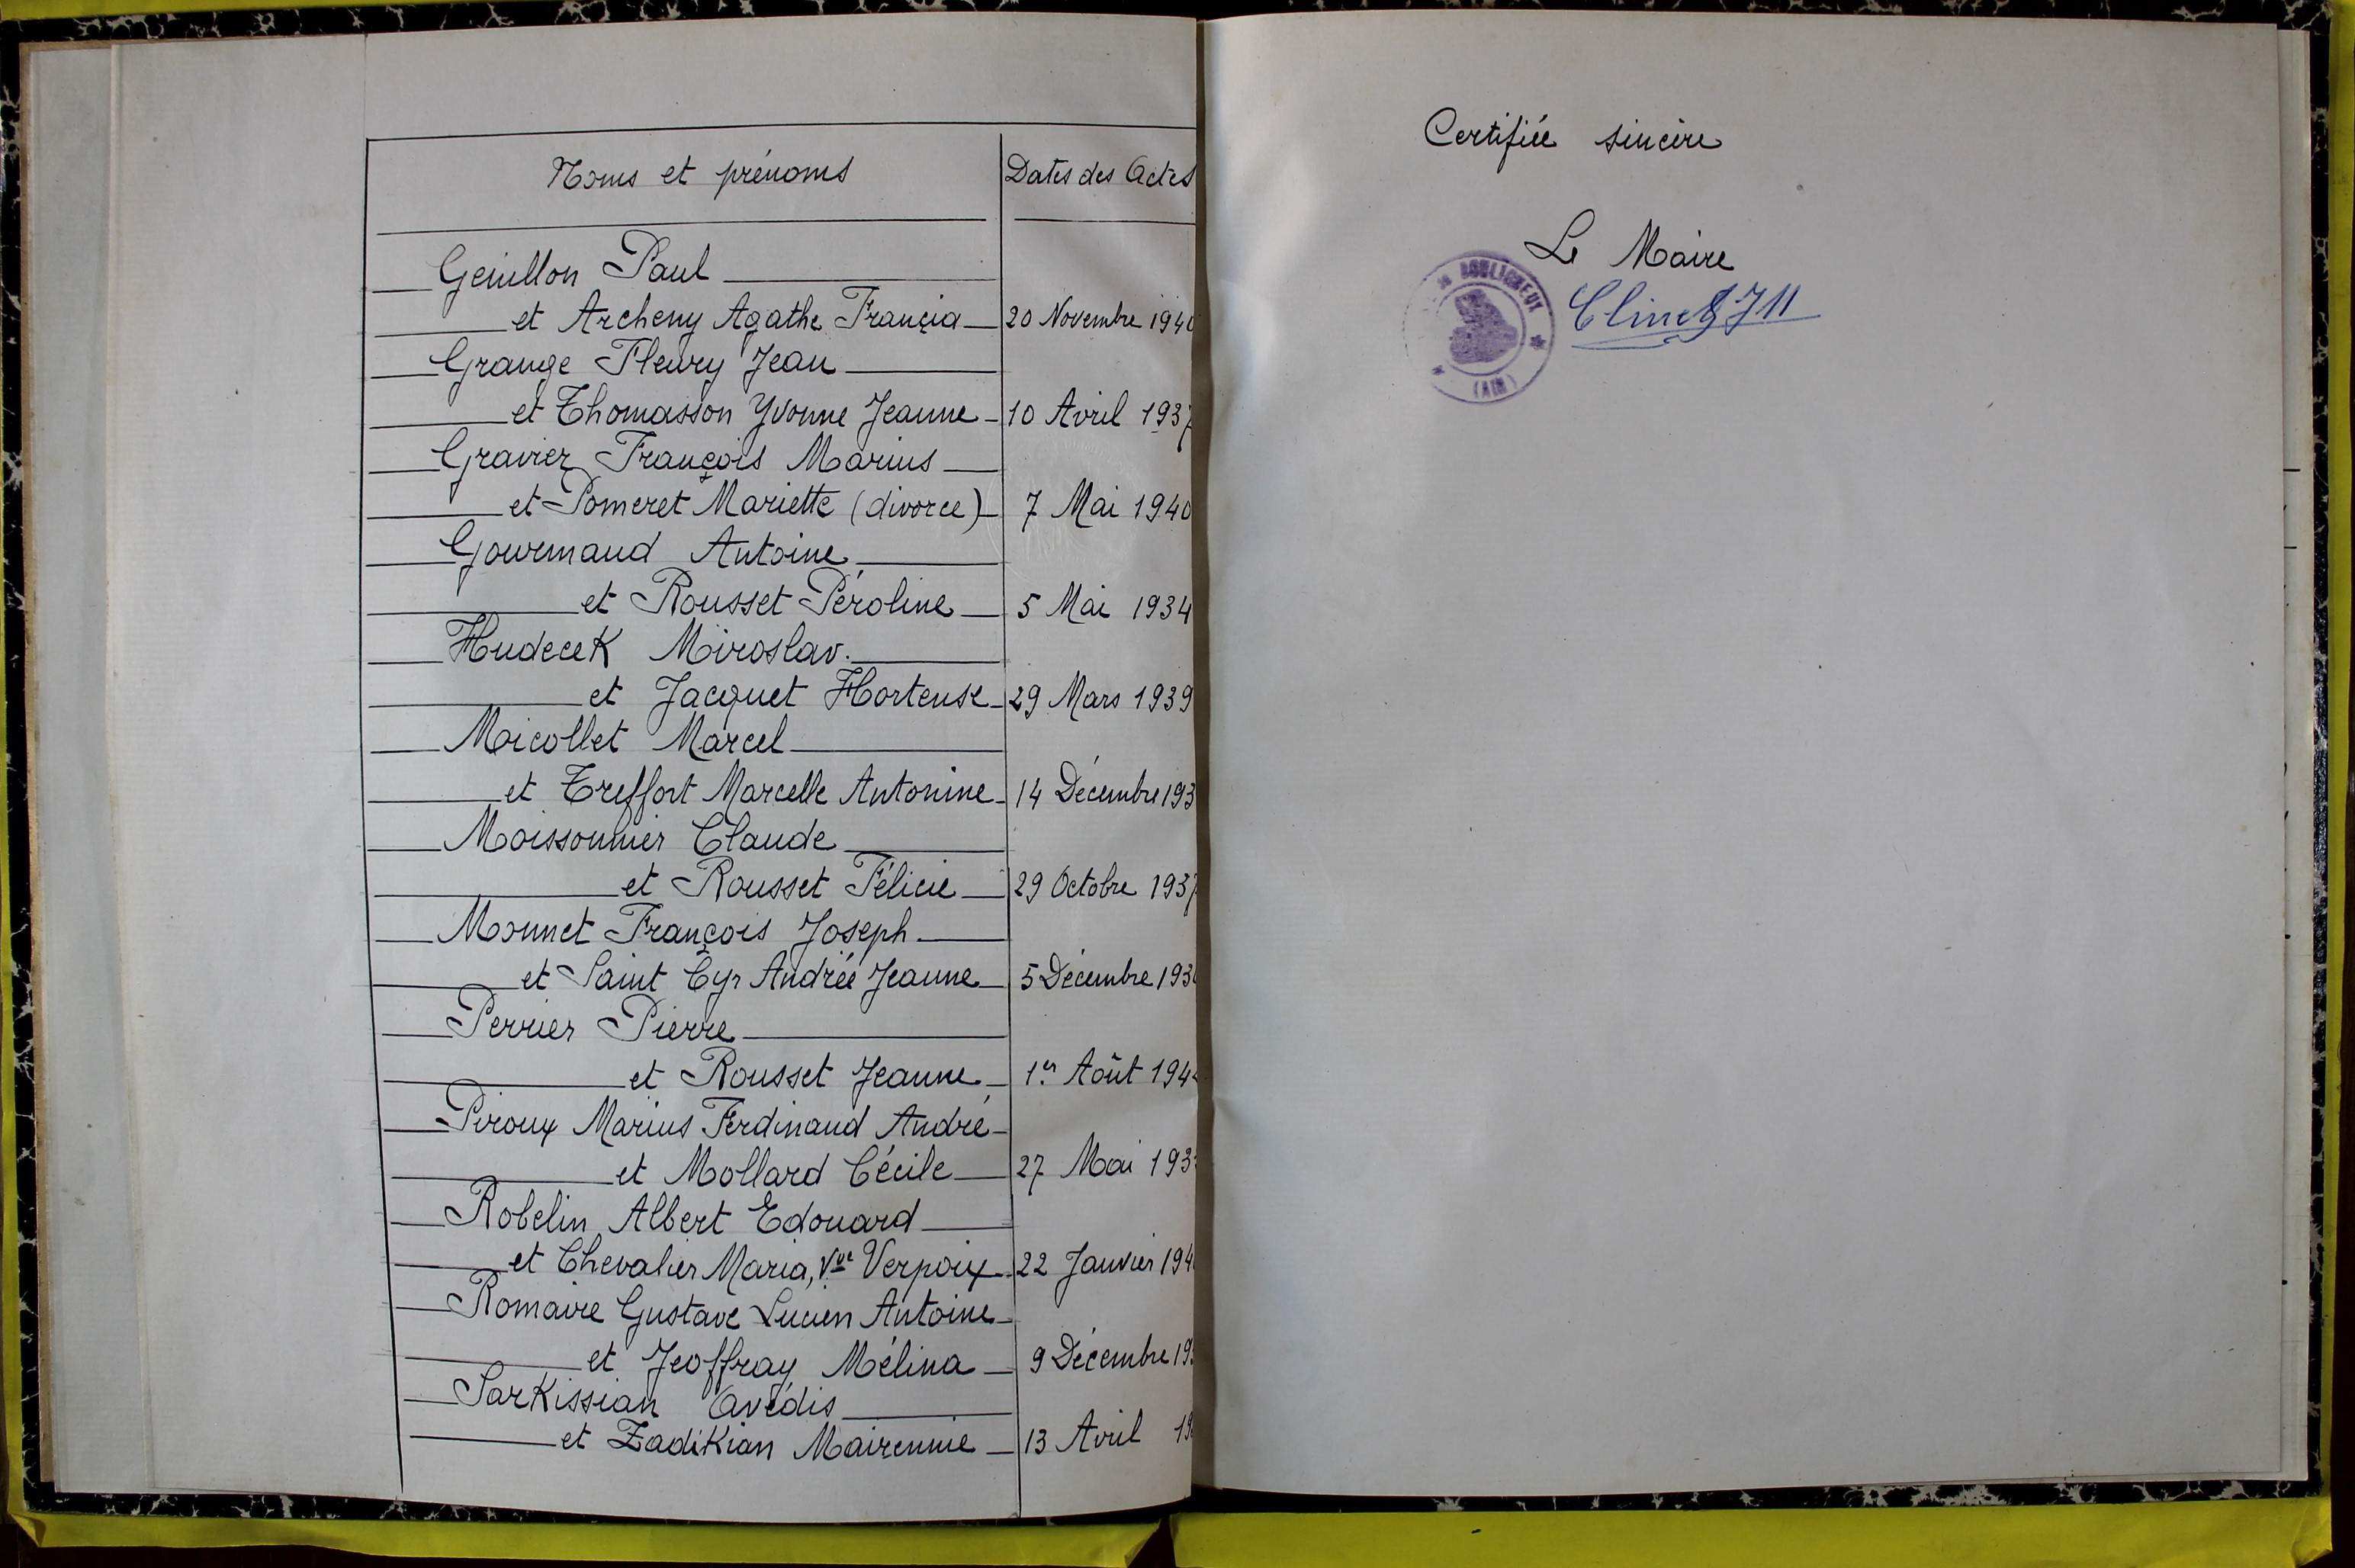 Noms et prénoms
Dates des Actes
Genillon Paul
et Archeny Agathe Françia 20 Novembre 1940
Grange Fleury Jean
et Thomasson Yvonne Jeanne 10 Avril 1937
Gravier François Marius
et Pomeret Mariette (divorce) 7 Mai 1940
Gourmaud Antoine
et Rousset Péroline 5 Mai 1934
Hudecek Miroslav.
et Jacquet Hortense 29 Mars 1939
Micollet Marcel
et Treffort Marcelle Antonine 14 Décembre 193
Moissonnier Claude
et Rousset Félicie 29 Octobre 1937
Monnet François Joseph
et Saint Cyr Andrée Jeanne 5 Décembre 193
Perrier Pierre
et Rousset Jeanne 1er Août 194
Piroux Marius Ferdinand André
et Mollard Cécile 27 Mai 193
Robelin Albert Edouard
et Chevalier Maria, Vve Verpoix 22 Janvier 194
Romaire Gustave Lucien Antoine
et Jeoffray Mélina 9 Décembre 19
Sarkissian Avédis
et Zadikian Mairennie 13 Avril 19
Certifiée sincère
Le Maire
BOULIGNEUX
(AIN)